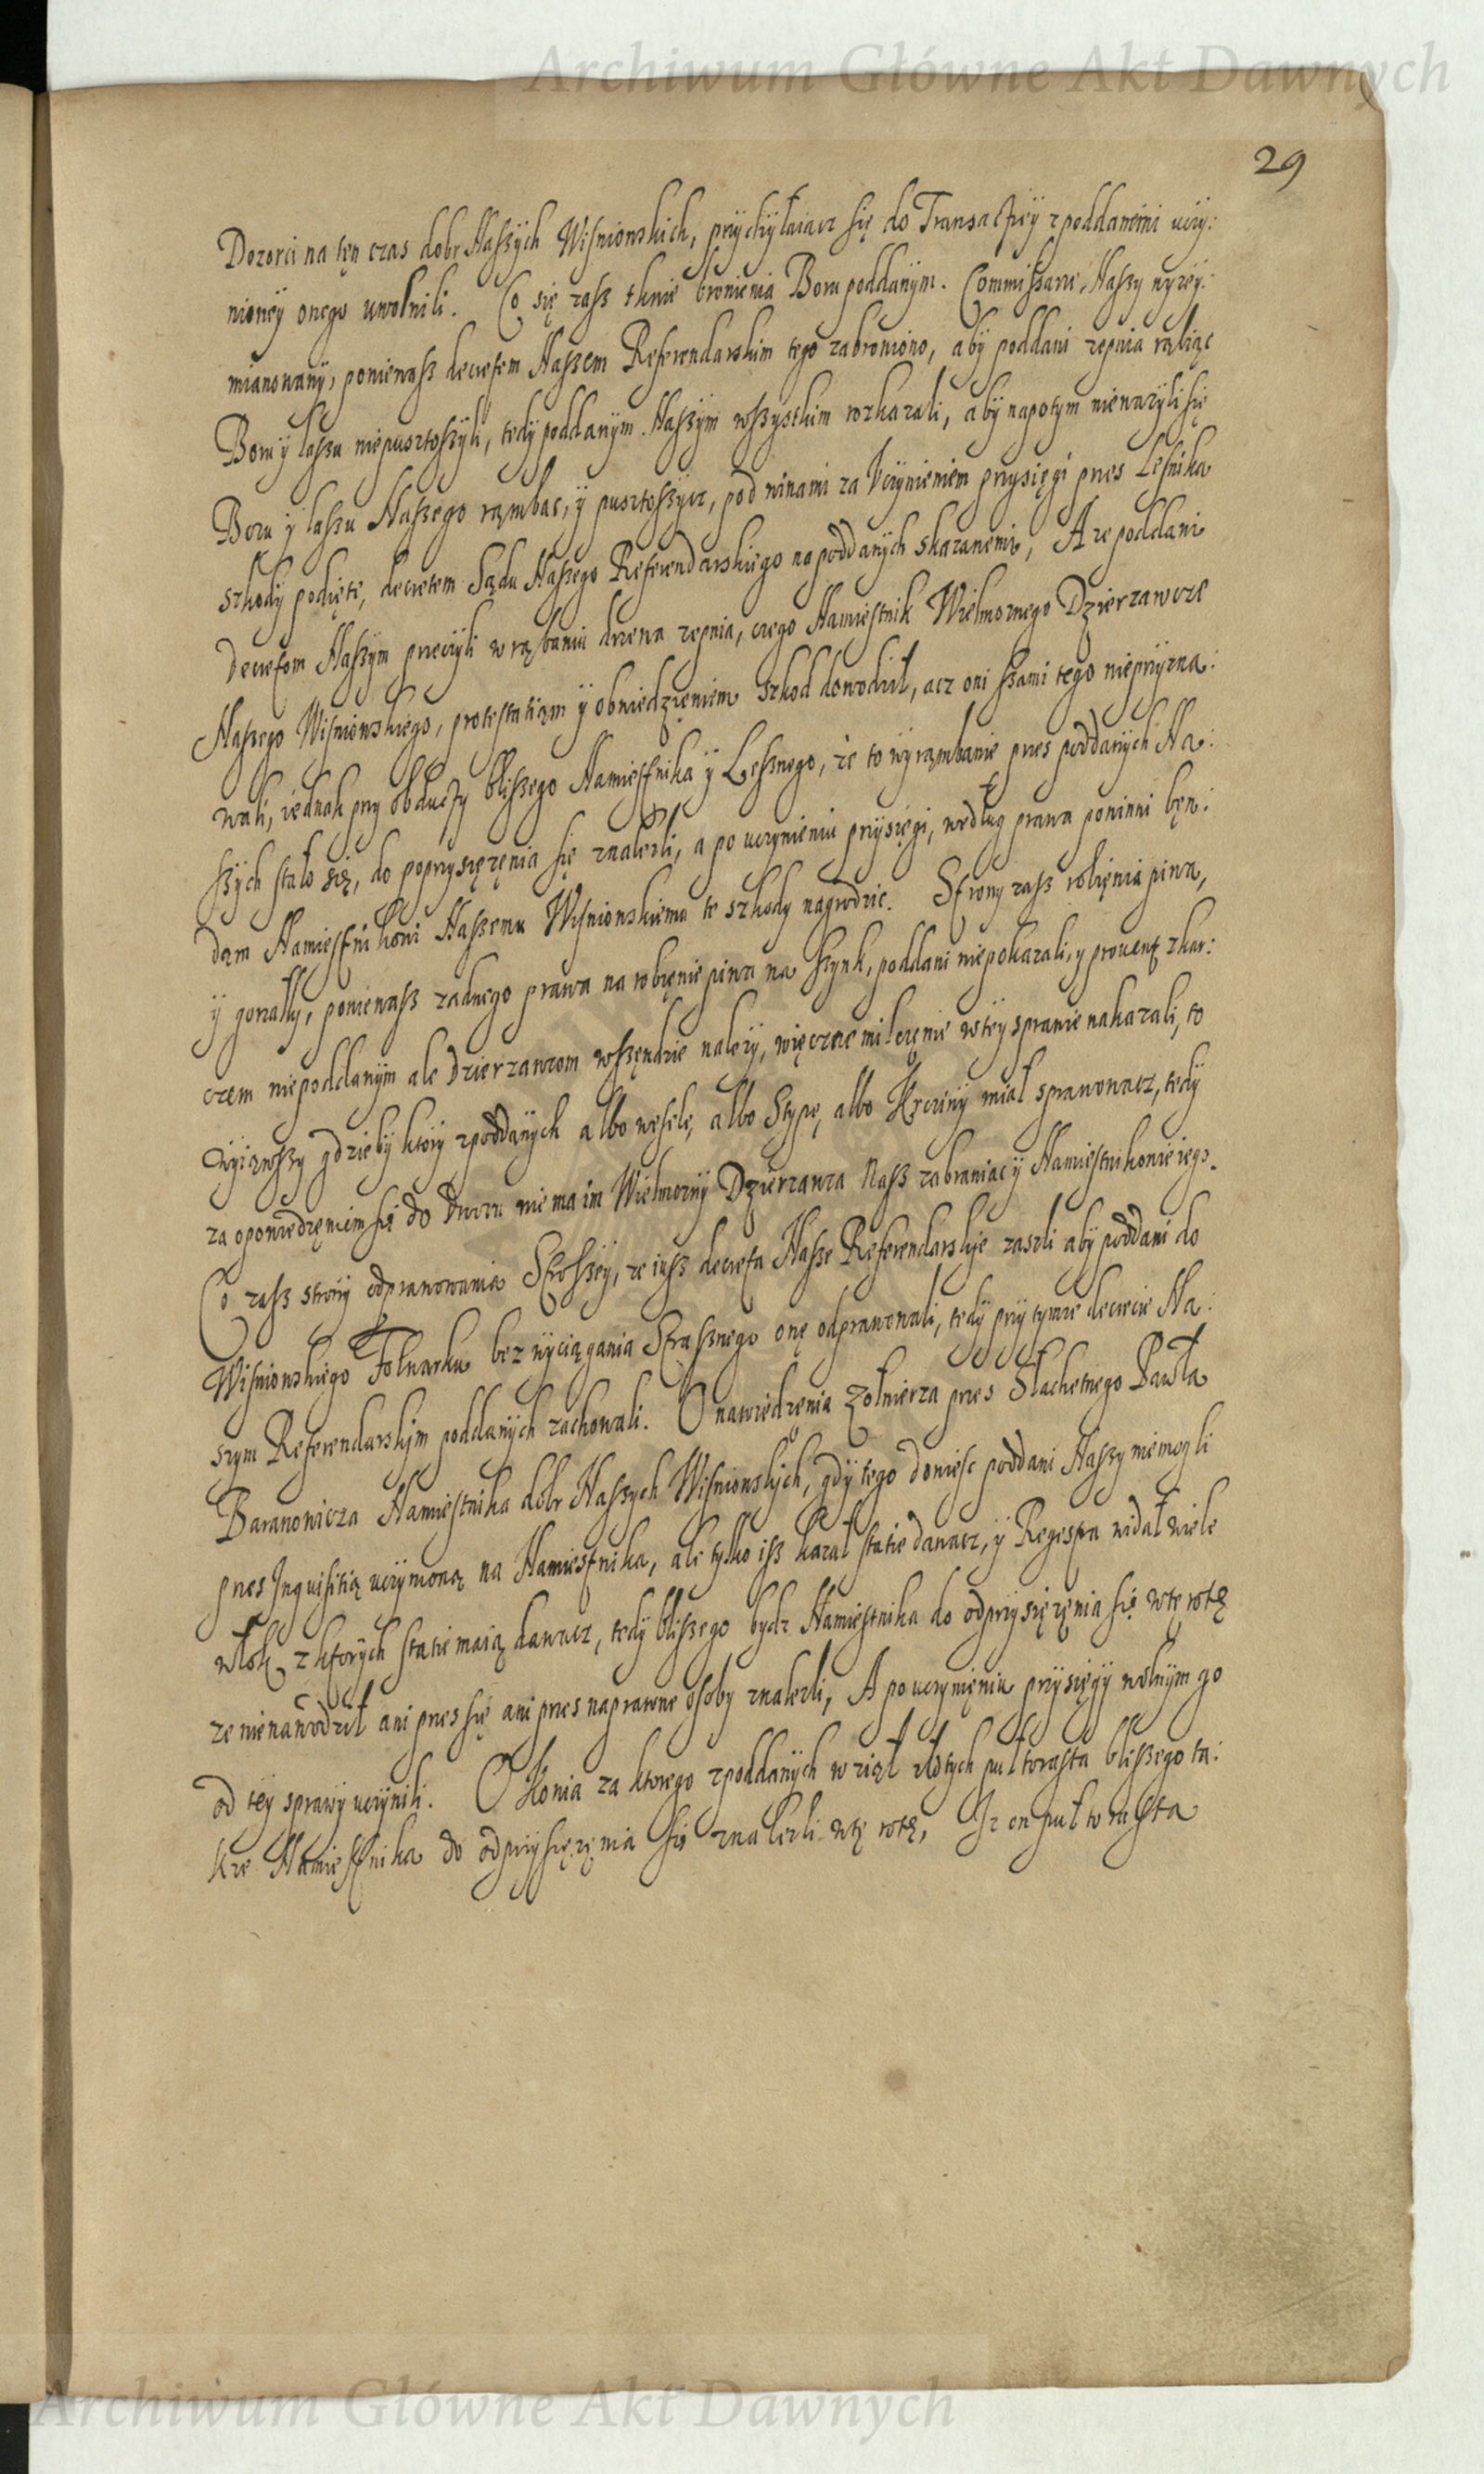 Archiwum Główne Akt Dawnych
29
Dozorci na tęn czas dobr Naszych Wisnionskich, przychÿlaiacz się do Transactiey z poddanemi uczy:
nioneÿ onego uwolnili. Co się zasz tknie bronienia Boru poddanÿm. Commissarze Naszy wyzey:
mianowanÿ, poniewasz decretem Naszem Referendarskim tego zabroniono, a bÿ poddani zepnia rąbiąc
Boru ÿ lassu niepusztoszÿli, tedÿ poddanÿm Naszÿm wszystkim rozkazali, a bÿ napotym niewazÿli się
Boru ÿ lassu Naszego rąmbac, ÿ pusztoszÿcz, pod winami za Uczynieniem przysięgi przes Lesnika
szkodÿ podięte, decretem Sądu Naszego Referendarskiego na poddanÿch skazanemi, A ze poddani
Decretom Naszym przeczyli w rąbaniu drzewa zepnia, czego Namiestnik Wielmoznego Dzierzawcze
Naszego Wisnionskiego, protestatiam ÿ obwiedzięniem szkod dowodził, acz oni szami tego nieprzyzna:
wali, iednak przy obdukcÿ bliszego Namiestnika ÿ Lesznego, ze to wÿrąmbanie przes poddanÿch Na:
szÿch stało się, do poprzysięzęnia się znalezli, a po uczynieniu przÿsięgi, według prawa powinni bęn:
dąm Namiestnikowi Naszemu Wisnionskiemu te szkody nagrodzic. Strony zasz robięnia piwa,
ÿ gorzałky, poniewasz zadnego prawa na robięnie piwa na szynk, poddani niepokazali, y prouent zkar:
czem niepoddanÿm ale Dzierzawcom wszęndzie nalezy, więczne milczęnie w tey sprawie nakazali, to
wÿiąwszy gdzieby ktory z poddanÿch albo wesele, albo Stypę, albo Krzcziny miał sprawowacz, tedÿ
za opowiedzęniem się do Dworu nie ma im Wielmoznÿ Dzierzawca Nasz zabraniac ÿ Namiestnikowie iego.
Co zasz stronÿ odprawowania Strozeÿ, ze iusz decreta Nasze Referendarskie zaszli aby poddani do
Wisnionskiego Folwarku bez wÿciągania Straznego onę odprawowali, tedÿ przÿ tymze decrecie Na:
szym Referendarskim poddanÿch zachowali. O nawiedzęnia zołnierza przes Slachetnego Pawła
Baranowicza Namiestnika dobr Naszych Wisnionskich, gdÿ tego doniesc poddani Naszy niemogli
przes Inquisitią uczynioną na Namiestnika, ale tylko isz kazał statie dawacz, ÿ Regestra widał wiele
włok z ktorych statie maią dawacz, tedÿ bliszego bydz Namiestnika do odprzysięzęnia się w tę rotę
ze nienawodził ani przes się ani przes naprawne osoby znalezli, A po uczynięniu przysięgÿ wolnÿm go
od teÿ sprawÿ uczynili. O Konia za ktorego z poddanÿch wziął złotych pułtorasta bliszego ta:
kze Namiestnika do odprzysięzęnia się znalezli w tę rotę, Iz on pułtorasta
Archiwum Główne Akt Dawnych